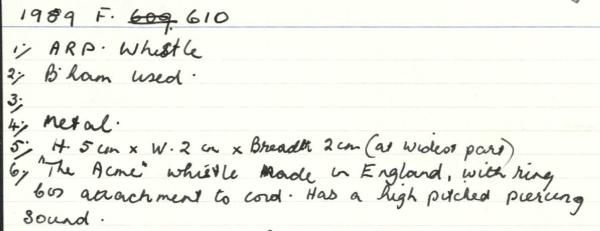 1989 F. 609. 610
1) ARP. Whistle
2) B'ham used.
3)
4) Metal.
5) H. 5 cm x W. 2 cm x Breadth 2cm (at widest part)
6) "The Acme" whistle Made in England, with ring
for attachment to cord. Has a high pitched piercing
sound.